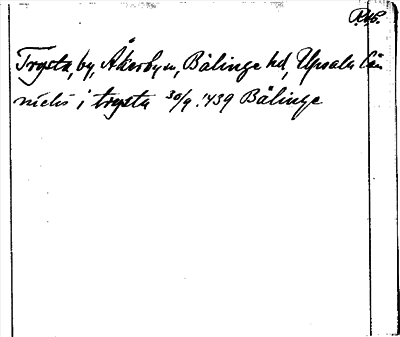 RAP.
Trysta, by, Åkerby sn, Bälinge hd, Upsala län
niclis i trysta 30/9. 1439 Bälinge